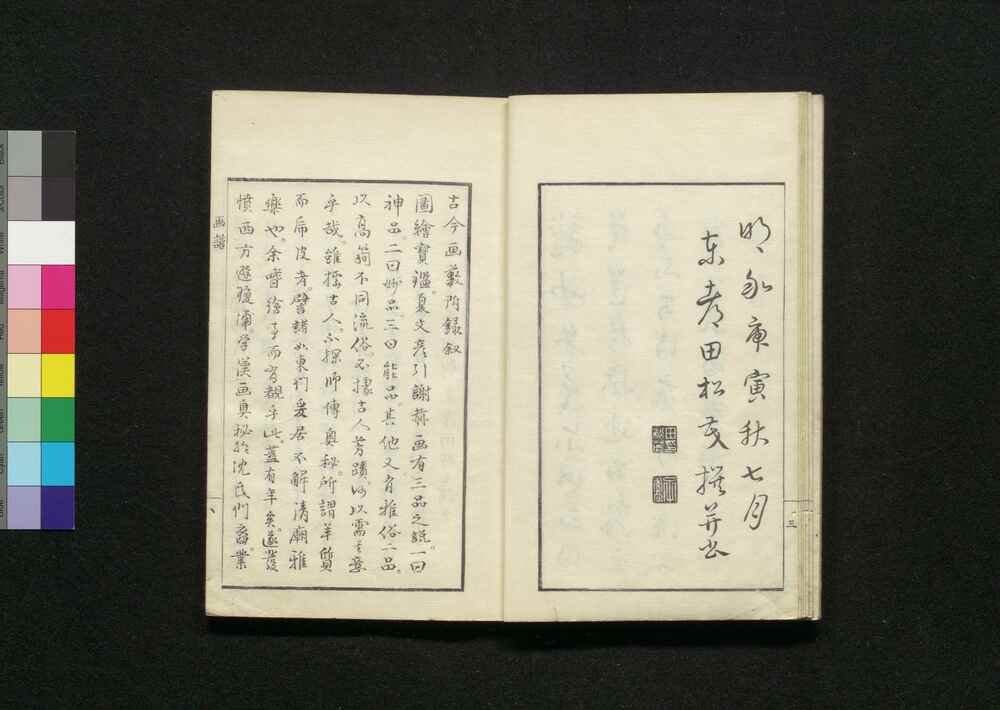 明和庚寅秋七月
東都田松茂撰并書
三
古今画藪附録叙
圖繪寶鑑夏文彦引謝赫画有三品之説一曰
神品二曰妙品三曰能品其他又有雅俗二品
以高簡不同流俗不據古人芳蹟何以需其意
乎哉雖據古人不探師傳奥秘所謂羊質
而虎皮者譬諸如東門爰居不解清廟雅
樂也余嘗繪事而有覯乎此蓋有年矣遂發
憤西方遊瓊浦学漢画奥秘於沈氏門裔業
画譜